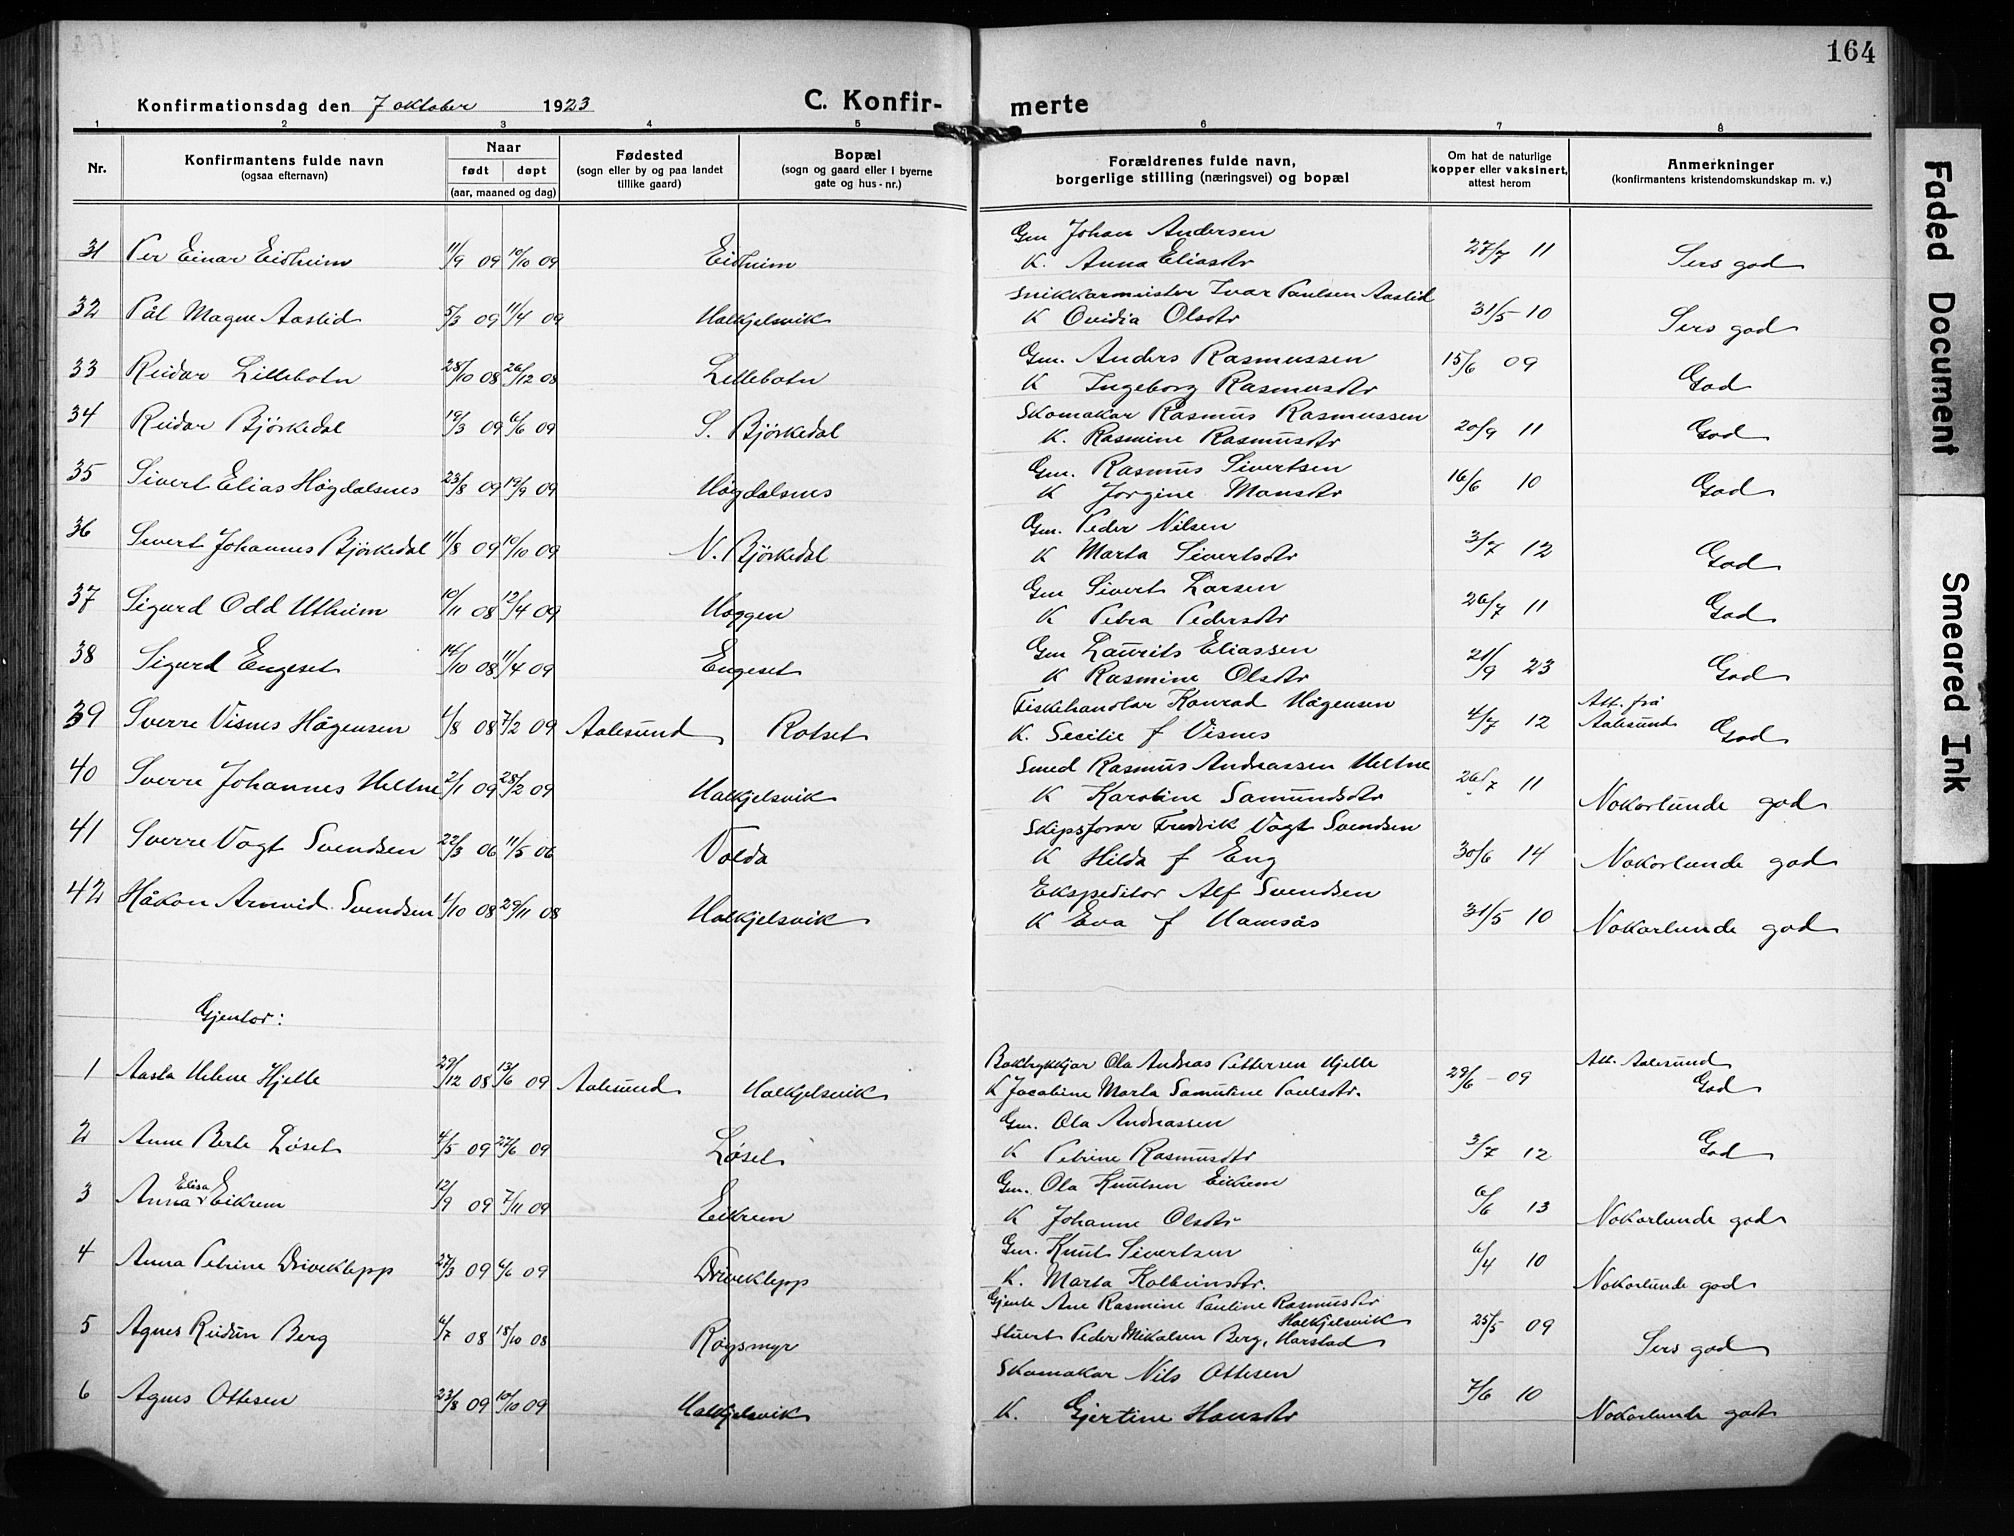 164
Konfirmationsdag den 7 oktober 1923 C. Konfir- merte
1 2 3 4 5 6 7 8
Nr. Konfirmantens fulde navn (ogsaa efternavn) Naar født døpt (aar, maaned og dag) Fødested (sogn eller by og paa landet tillike gaard) Bopæl (sogn og gaard eller i byerne gate og hus-nr.) Forældrenes fulde navn, borgerlige stilling (næringsvei) og bopæl Om hat de naturlige kopper eller vaksinert, attest herom Anmerkninger (konfirmantens kristendomskundskap m. v.)
Gm Johan Andersen
31 Per Einar Eidheim 11/9 09 10/10 09 Eidheim K. Anna Eliasdtr 27/7 11 Sers god
Snikkarmeister Ivar Paulsen Aaslid
32 Pål Magne Aaslid 5/3 09 11/4 09 Halkjelsvik K Ovidia Olsdtr 31/5 10 Sers god
Gm. Anders Rasmussen
33 Reidar Lillebotn 28/10 08 26/12 08 Lillebotn K Ingeborg Rasmusdtr 15/6 09 God
Skomakar Rasmus Rasmussen
34 Reidar Bjørkedal 19/3 09 6/6 09 S. Bjørkedal K. Rasmine Rasmusdtr 20/9 11 God
Gm. Rasmus Sivertsen
35 Sivert Elias Høgdalsnes 23/8 09 19/9 09 Høgdalsnes K Jorgine Mansdtr 16/6 10 God
Gm. Peder Nilsen
36 Sivert Johannes Bjørkedal 11/8 09 10/10 09 N. Bjørkedal K Marta Sivertsdtr 3/7 12 God
Gm Sivert Larsen
37 Sigurd Odd Utheim 10/11 08 12/4 09 Haggen K Petra Pedersdtr 26/7 11 God
Gm Laurits Eliassen
38 Sigurd Engeset 14/10 08 11/4 09 Engeset K Rasmine Olsdtr 21/9 23 God
Fiskehandlar Konrad Hågensen Att. frå
39 Sverre Visnes Hågensen 1/8 08 7/2 09 Aalesund Rotset K. Secilie f Visnes 4/7 12 Aalesund God
Smed Rasmus Andreassen Heltne
40 Sverre Johannes Heltne 2/1 09 28/2 09 Halkjelsvik K Karoline Samundsdtr 26/7 11 Nokorlunde god
Skipsførar Fredrik Vogt Svendsen
41 Sverre Vogt Svendsen 22/3 06 11/5 06 Volda K Hilda f Eng 30/6 14 Nokorlunde god
Ekspeditor Alf Svendsen
42 Håkon Arnvid Svendsen 1/10 08 29/11 08 Halkjelsvik K Eva f Hamsås 31/5 10 Nokorlunde god
Gjentor:
Boktrykkjar Ola Andreas Pettersen Hjelle Att. Aalesund
1 Aasta Helene Hjelle 29/12 08 13/6 09 Aalesund Halkjelsvik K Jacobine Marta Samuline Paulsdtr. 29/6 - 09 God
Gm. Ola Andreassen
2 Anne Berte Løset 4/5 09 27/6 09 Løset K Petrine Rasmusdtr 3/7 12 God
Elisa Gm. Ola Knutsen Eikrem
3 Anna Eikrem 12/9 09 7/11 09 Eikrem K Johanne Olsdtr 6/6 13 Nokorlunde god
Gm. Knut Sivertsen
4 Anna Petrine Driveklepp 27/3 09 6/6 09 Driveklepp K. Marta Kolbeinsdtr. 6/4 10 Nokorlunde god
Gjente Ane Rasmine Pauline Rasmusdtr Halkjelsvik
5 Agnes Reidun Berg 6/7 08 18/10 08 Røysmyr Stuert Peder Mikalsen Berg, Harstad 25/5 09 Sers god
Skomakar Nils Ottesen
6 Agnes Ottesen 23/8 09 10/10 09 Halkjelsvik K. Gjertine Hansdtr 7/6 10 Nokorlunde god
Faded Document
Smeared Ink